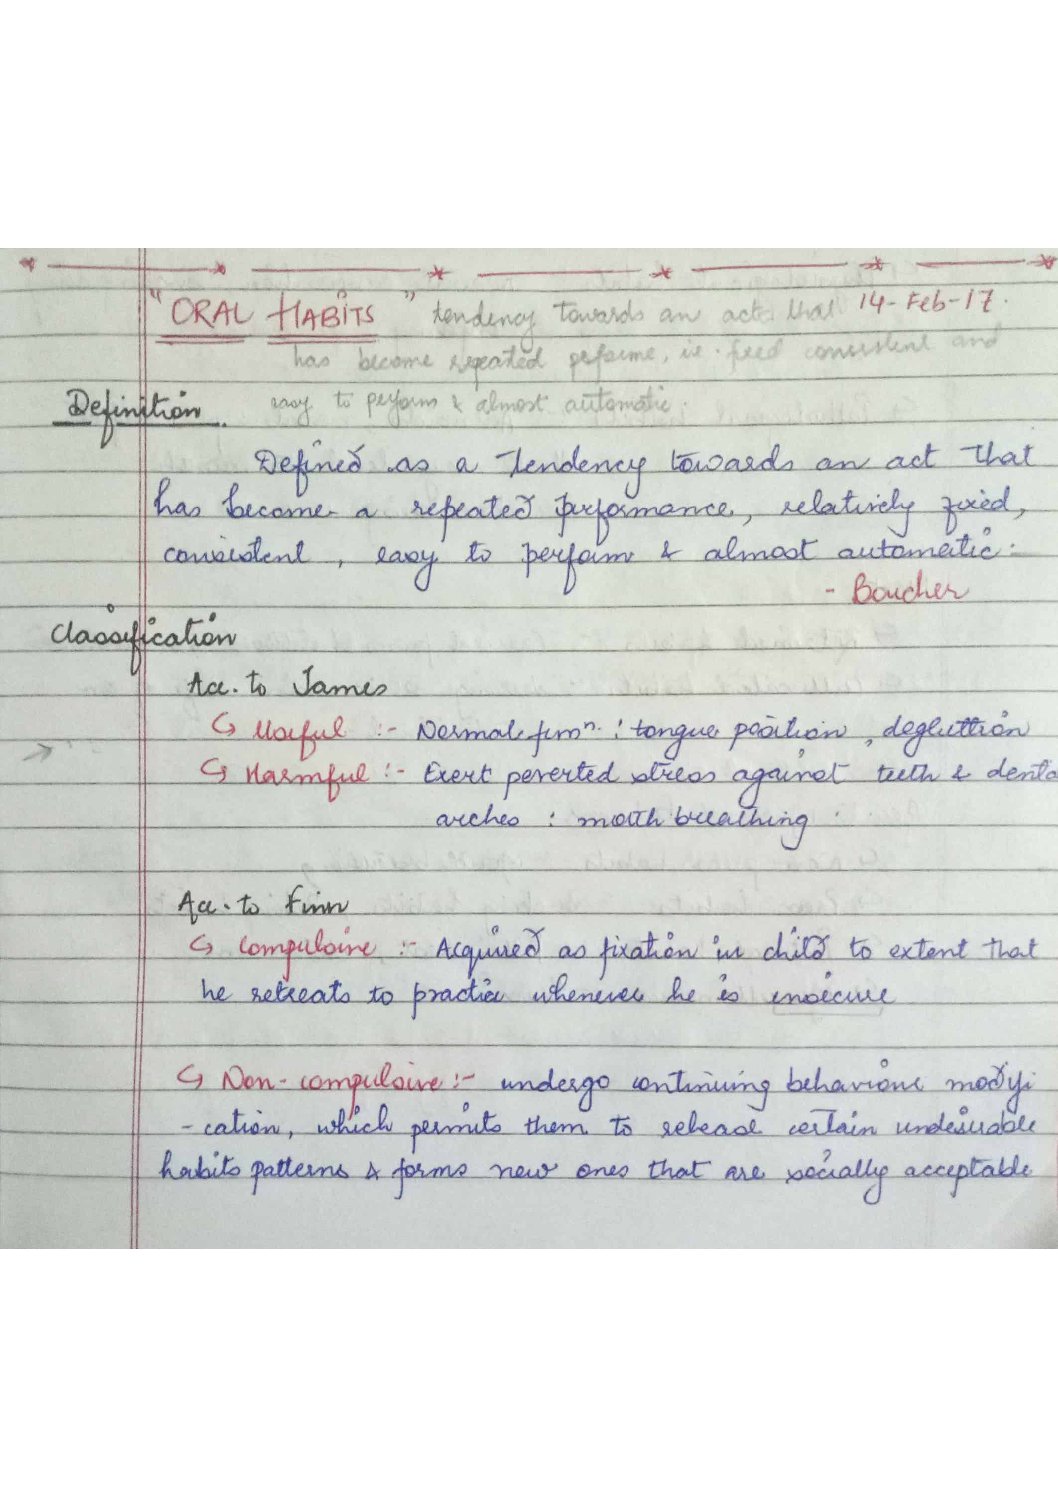 "ORAL HABITS" tendency towards an acts that 14-Feb-17.
has become repeated performe, ie. fixed consistent and
Definition easy to perform & almost automatic.
Defined as a tendency towards an act that
has become a repeated performance, relatively fixed,
consistent, easy to perform & almost automatic.
- Boucher
Classification
Acc. to James
↳ Useful :- Normal funⁿ : tongue position, deglution
↳ Harmful :- Exert perverted stress against teeth & denta
arches : mouth breathing
Acc. to Finn
↳ Compulsive :- Acquired as fixation in child to extent that
he retreats to practice whenever he is insecure
↳ Non-compulsive :- undergo continuing behaviour modifi
-cation, which permits them to release certain undesirable
habits patterns & forms new ones that are socially acceptable